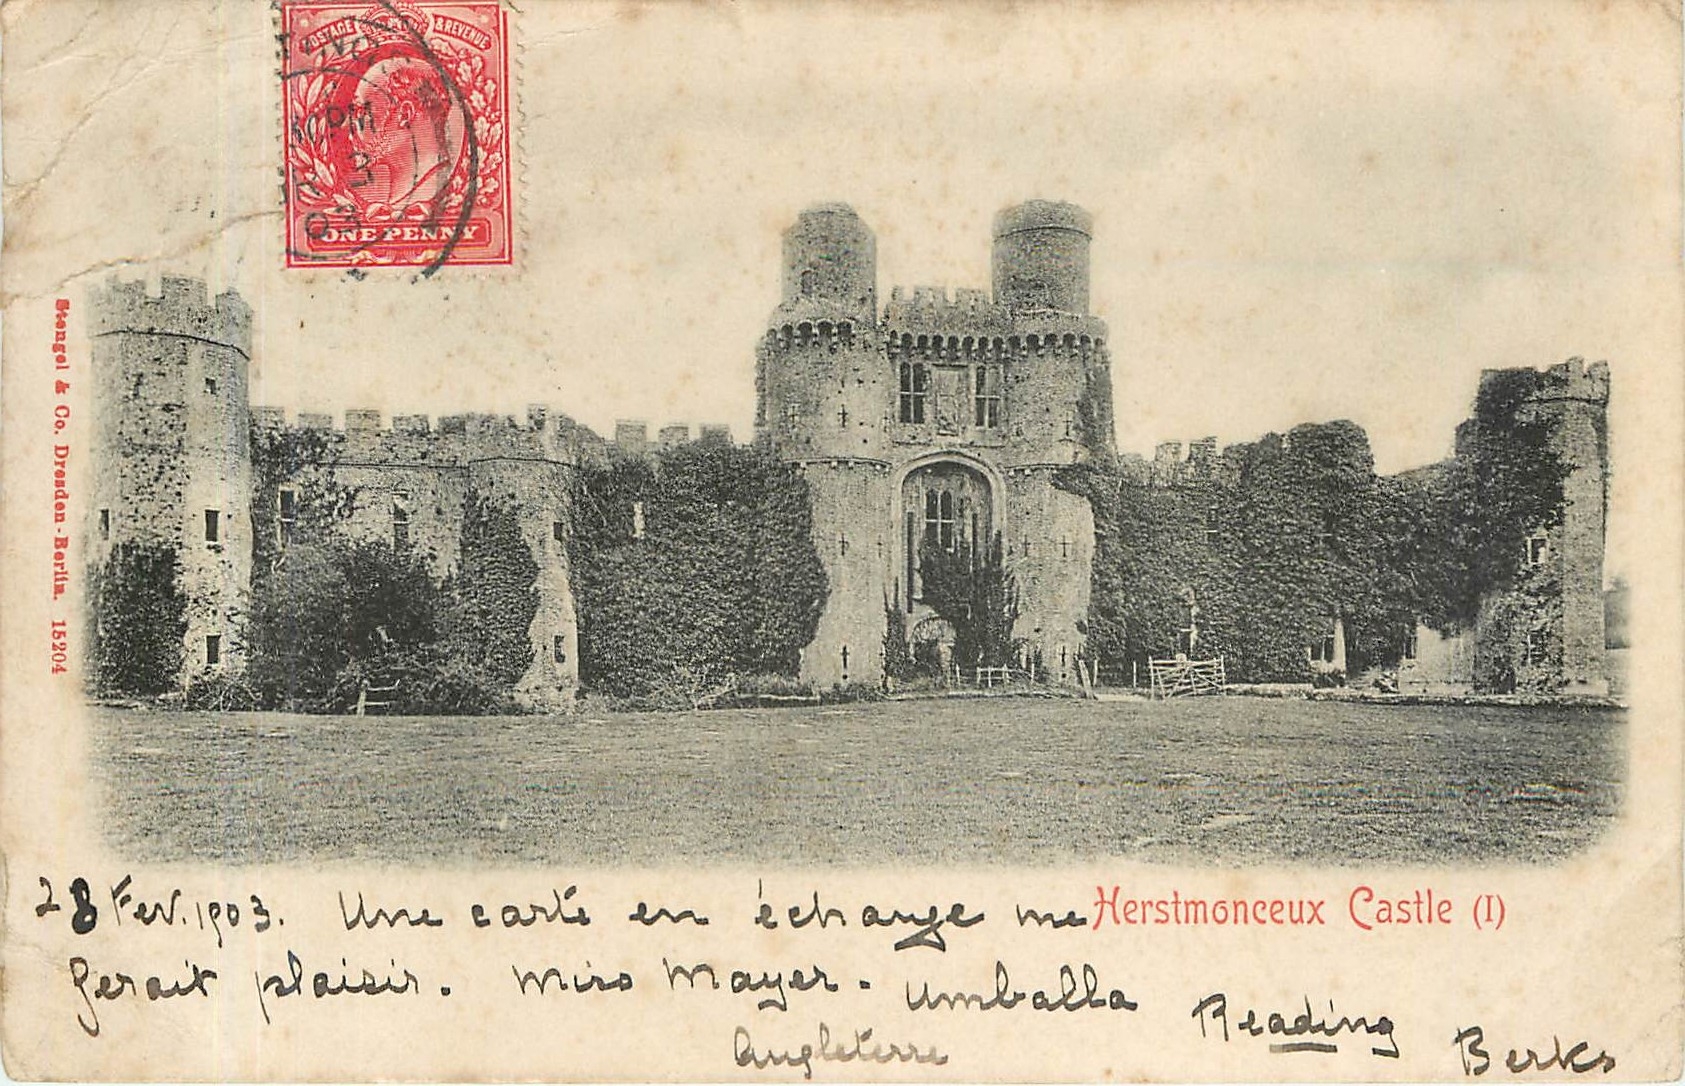 POSTAGE & REVENUE
PM
3
03
ONE PENNY
Stengel & Co. Dresden-Berlin. 15204
Herstmonceux Castle (I)
28 Fev. 1903. Une carte en échange me
ferait plaisir. Miss Mayer. Umballa
Reading
Angleterre
Berks